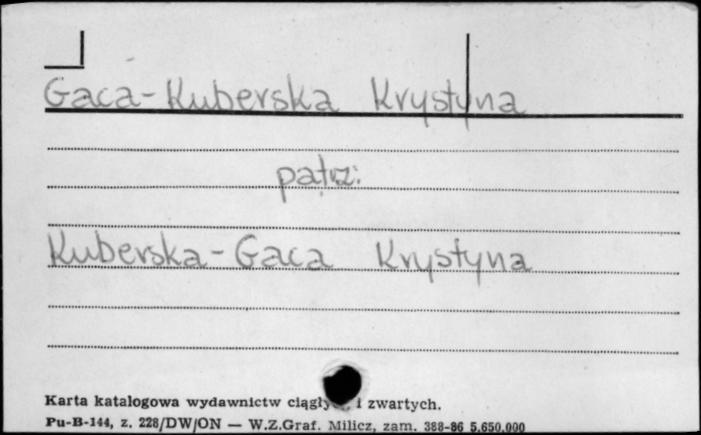 Gaca-Kuberska Krystyna
patrz:
Kuberska-Gaca Krystyna
Karta katalogowa wydawnictw i zwartych.
Pu-B-144, z. 228/DW/ON — W.Z.Graf. Milicz, zam. 388-86 5.650.000